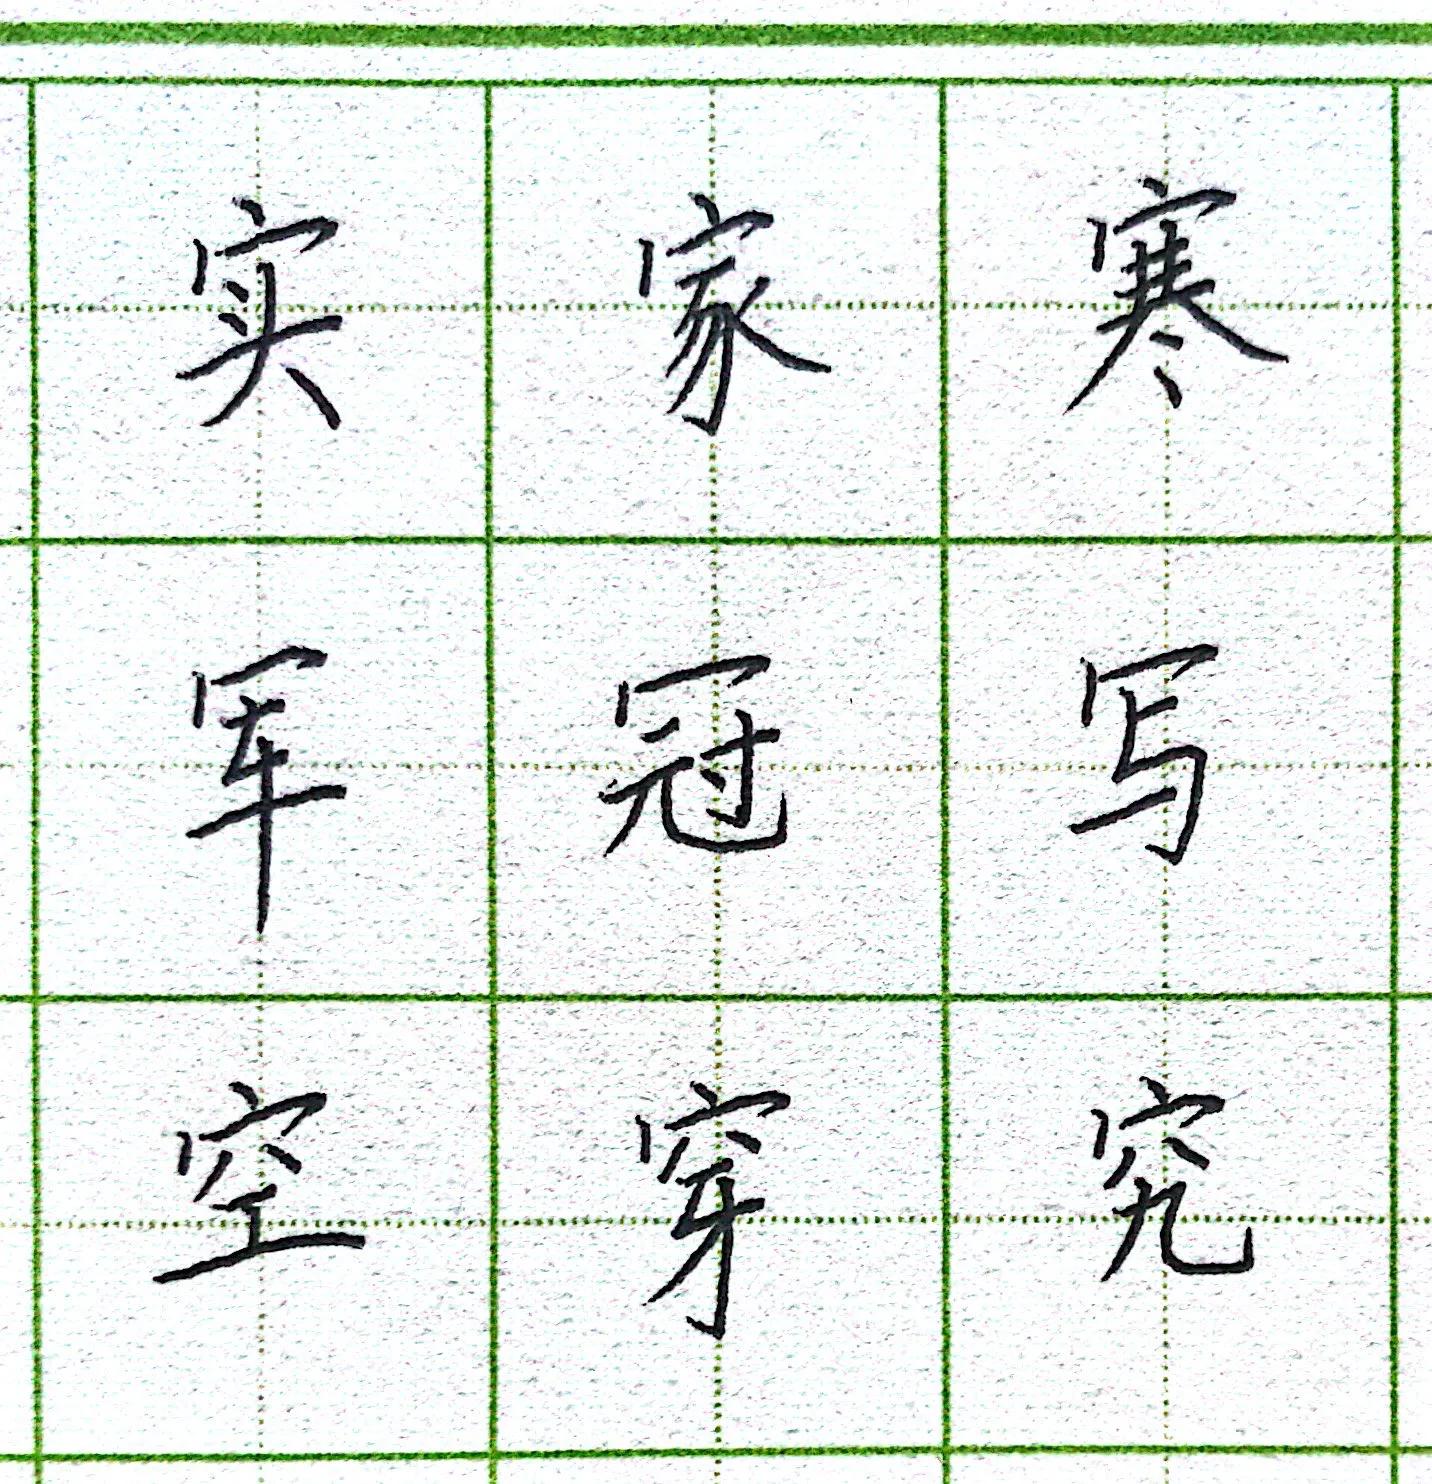 实家寒
军冠写
空穿究